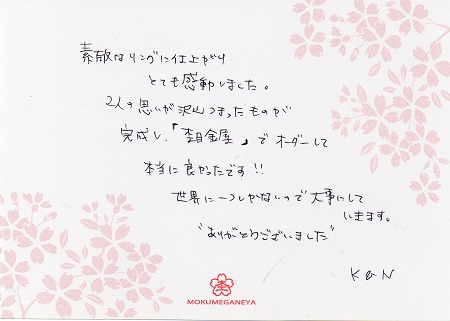 素敵なリングに仕上がり
とても感動しました。
2人の思いが沢山つまったものが
完成し、「杢目金屋」でオーダーして
本当に良かったです!!
世界に一つしかないので大事にして
いきます。
"ありがとうございました"
K&N
MOKUMEGANEYA